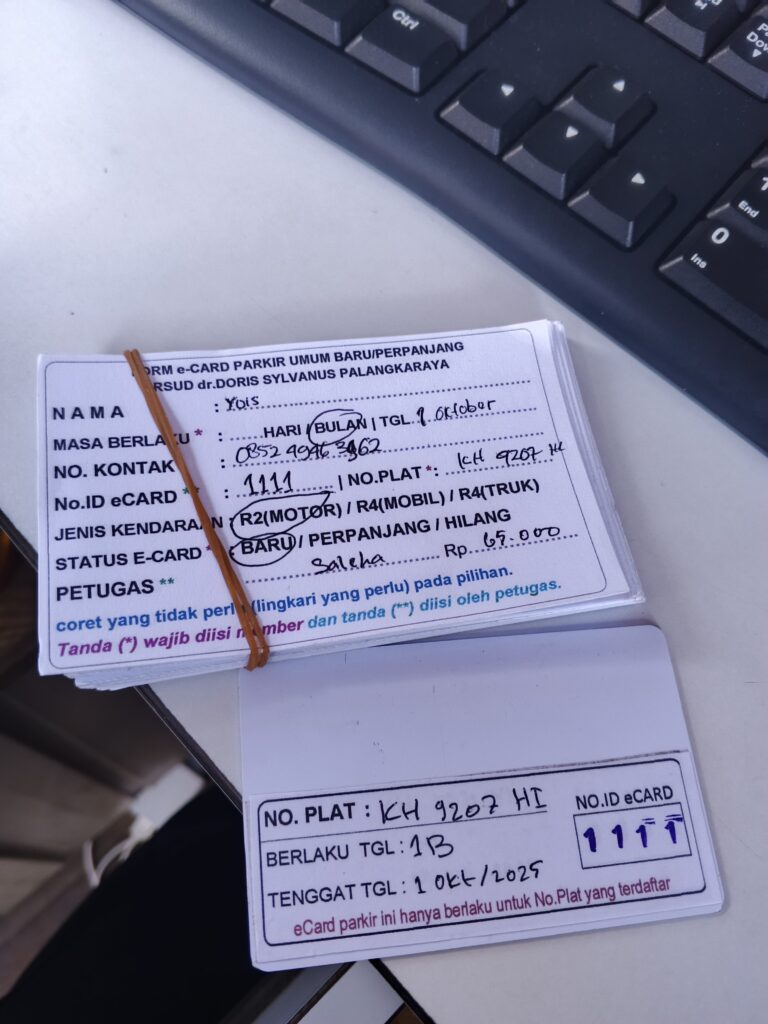 Ctrl
End
0
Ins
FORM e-CARD PARKIR UMUM BARU/PERPANJANG
RSUD dr.DORIS SYLVANUS PALANGKARAYA
NAMA : Yais
MASA BERLAKU * : ......HARI / BULAN | TGL 1 Oktober
NO. KONTAK : 0852 4946 3462
No.ID eCARD ** : 1111 | NO.PLAT *: KH 9207 HI
JENIS KENDARAAN : R2(MOTOR) / R4(MOBIL) / R4(TRUK)
STATUS E-CARD * : BARU / PERPANJANG / HILANG
PETUGAS ** Saleha Rp 65.000
coret yang tidak perlu (lingkari yang perlu) pada pilihan.
Tanda (*) wajib diisi member dan tanda (**) diisi oleh petugas.
NO. PLAT : KH 9207 HI
NO.ID eCARD
1111
BERLAKU TGL : 1B
TENGGAT TGL : 1 Okt/2025
eCard parkir ini hanya berlaku untuk No.Plat yang terdaftar